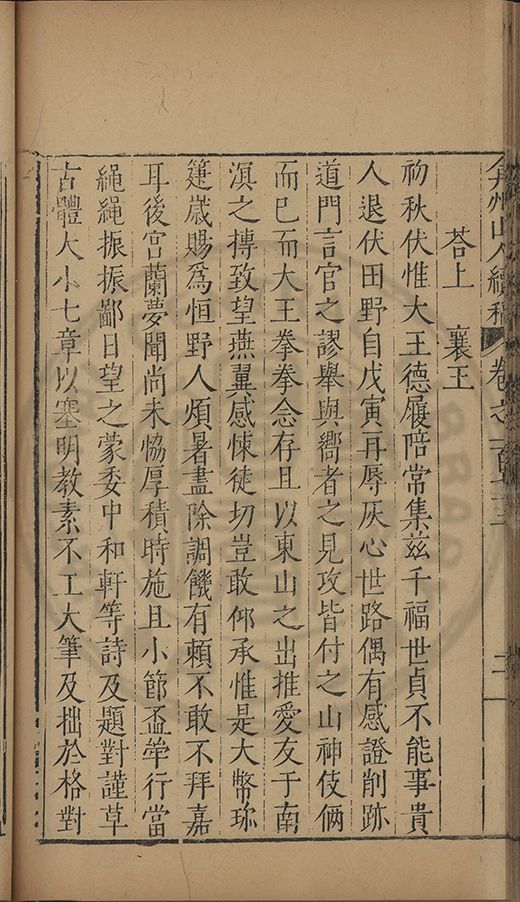 弇州山人續稿 卷之一百七十三
荅上 襄王
初秋伏惟大王德履陪常集茲千福世貞不能事貴
人退伏田野自戊寅再辱灰心世路偶有感證削跡
道門言官之謬舉與嚮者之見攻皆付之山神伎倆
而已而大王拳拳念存且以東山之出推愛友于南
溟之摶致望燕翼感悚徒切豈敢仰承惟是大幣珎
箑歲賜為恒野人煩暑盡除調饑有賴不敢不拜嘉
耳後宮蘭夢聞尚未恊厚積時施且小節盃斚行當
繩繩振振鄙日望之蒙委中和軒等詩及題對謹草
古體大小七章以塞明教素不工大筆及拙於格對